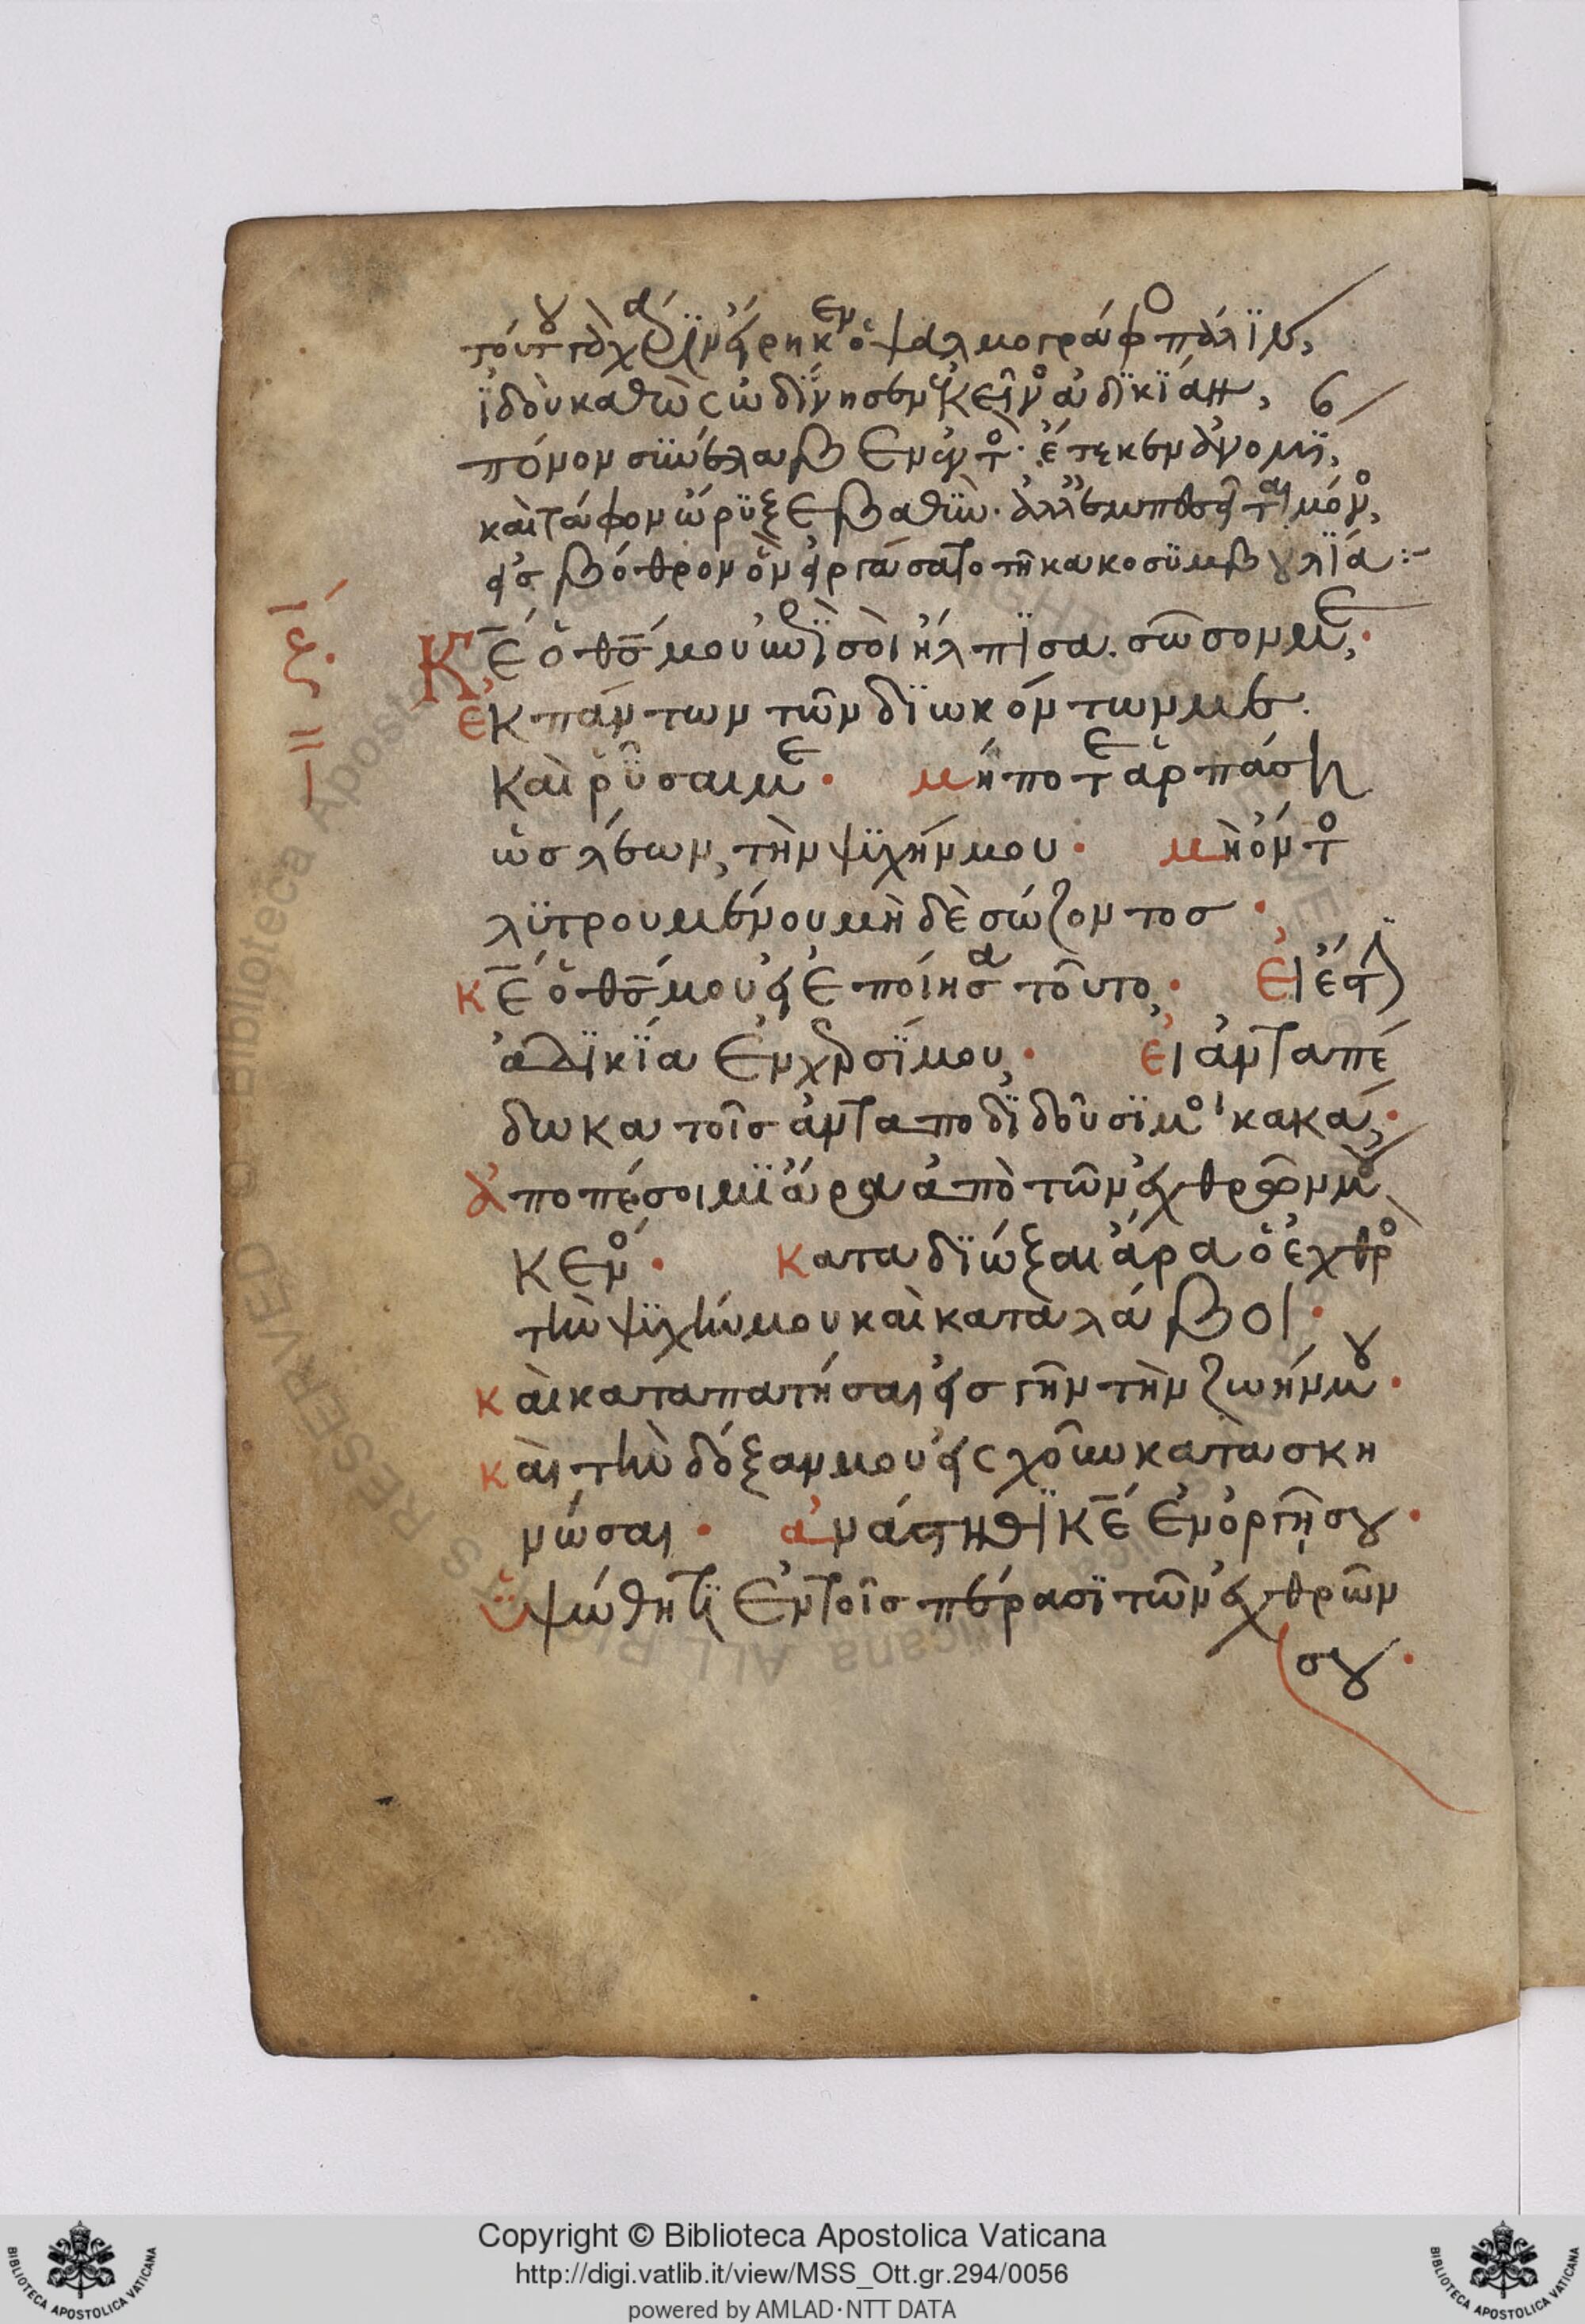 τούτου γὰρ χάριν εἴρηκεν ὁ ψαλμογράφος πάλιν,
ἰδοὺ καθὼς ὠδίνησεν ἐκεῖνος ἀδικίαν,
πόνον συνέλαβεν αὐτός· ἔτεκεν ἀνομίαν,
καὶ τάφον ὤρυξε βαθύν· ἀλλ' ἐμπεσεῖται μόνος,
εἰς βόθρον ὃν εἰργάσατο τῇ κακοσυμβουλίᾳ :~
Κ̅ε̅ ὁ θ̅ς̅ μου ἐπὶ σοὶ ἤλπισα. σῶσόν με,
ἐκ πάντων τῶν διωκόντων με.
καὶ ῥῦσαί με· μήποτε ἁρπάσῃ
ὡς λέων, τὴν ψυχήν μου· μὴ ὄντος
λυτρουμένου μὴ δὲ σώζοντος·
Κ̅ε̅ ὁ θ̅ς̅ μου εἰ ἐποίησα τοῦτο, · εἰ ἔστιν
ἀδικία ἐν χερσί μου, · εἰ ἀνταπέ
δωκα τοῖς ἀνταποδιδοῦσί μοι κακά, ·
ἀποπέσοιμι ἄρα ἀπὸ τῶν ἐχθρῶν μου
κενός· καταδιώξαι ἄρα ὁ ἐχθρὸς
τὴν ψυχήν μου καὶ καταλάβοι·
καὶ καταπατήσαι εἰς γῆν τὴν ζωήν μου·
καὶ τὴν δόξαν μου εἰς χοῦν κατασκη
νώσαι· ἀνάστηθι κ̅ε̅ ἐν ὀργῇ σου·
ὑψώθητι ἐν τοῖς πέρασι τῶν ἐχθρῶν
σου·
Copyright © Biblioteca Apostolica Vaticana
http://digi.vatlib.it/view/MSS_Ott.gr.294/0056
powered by AMLAD·NTT DATA
BIBLIOTECA APOSTOLICA VATICANA
BIBLIOTECA APOSTOLICA VATICANA